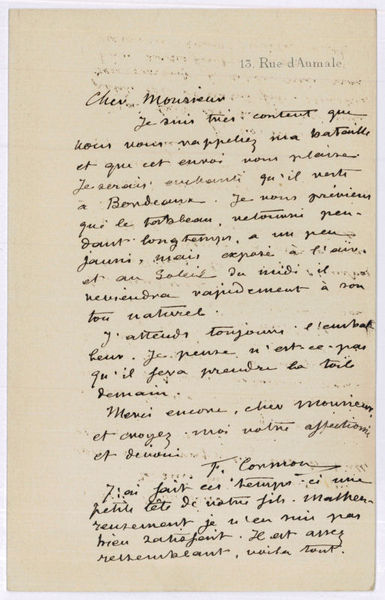 13, Rue d'Aumale.
Cher Monsieur
Je suis très content que
vous vous rappeliez ma bataille
et que cet envoi vous plaise
Je serais enchanté qu'il reste
à Bordeaux. Je vous préviens
que le tableau, retourné pen-
dant longtemps, a un peu
jauni, mais exposé à l'air
et au Soleil du midi il
reviendra rapidement à son
ton naturel.
J'attends toujours l'embal
leur. Je pense n'est-ce-pas
qu'il fera prendre la toile
demain.
Merci encore, cher Monsieur,
et croyez moi votre affectionné
et dévoué
F. Cormon
J'ai fait ces temps-ci une
petite tête de votre fils. Malheu-
reusement je n'en suis pas
bien satisfait. Il est assez
ressemblant, voilà tout.